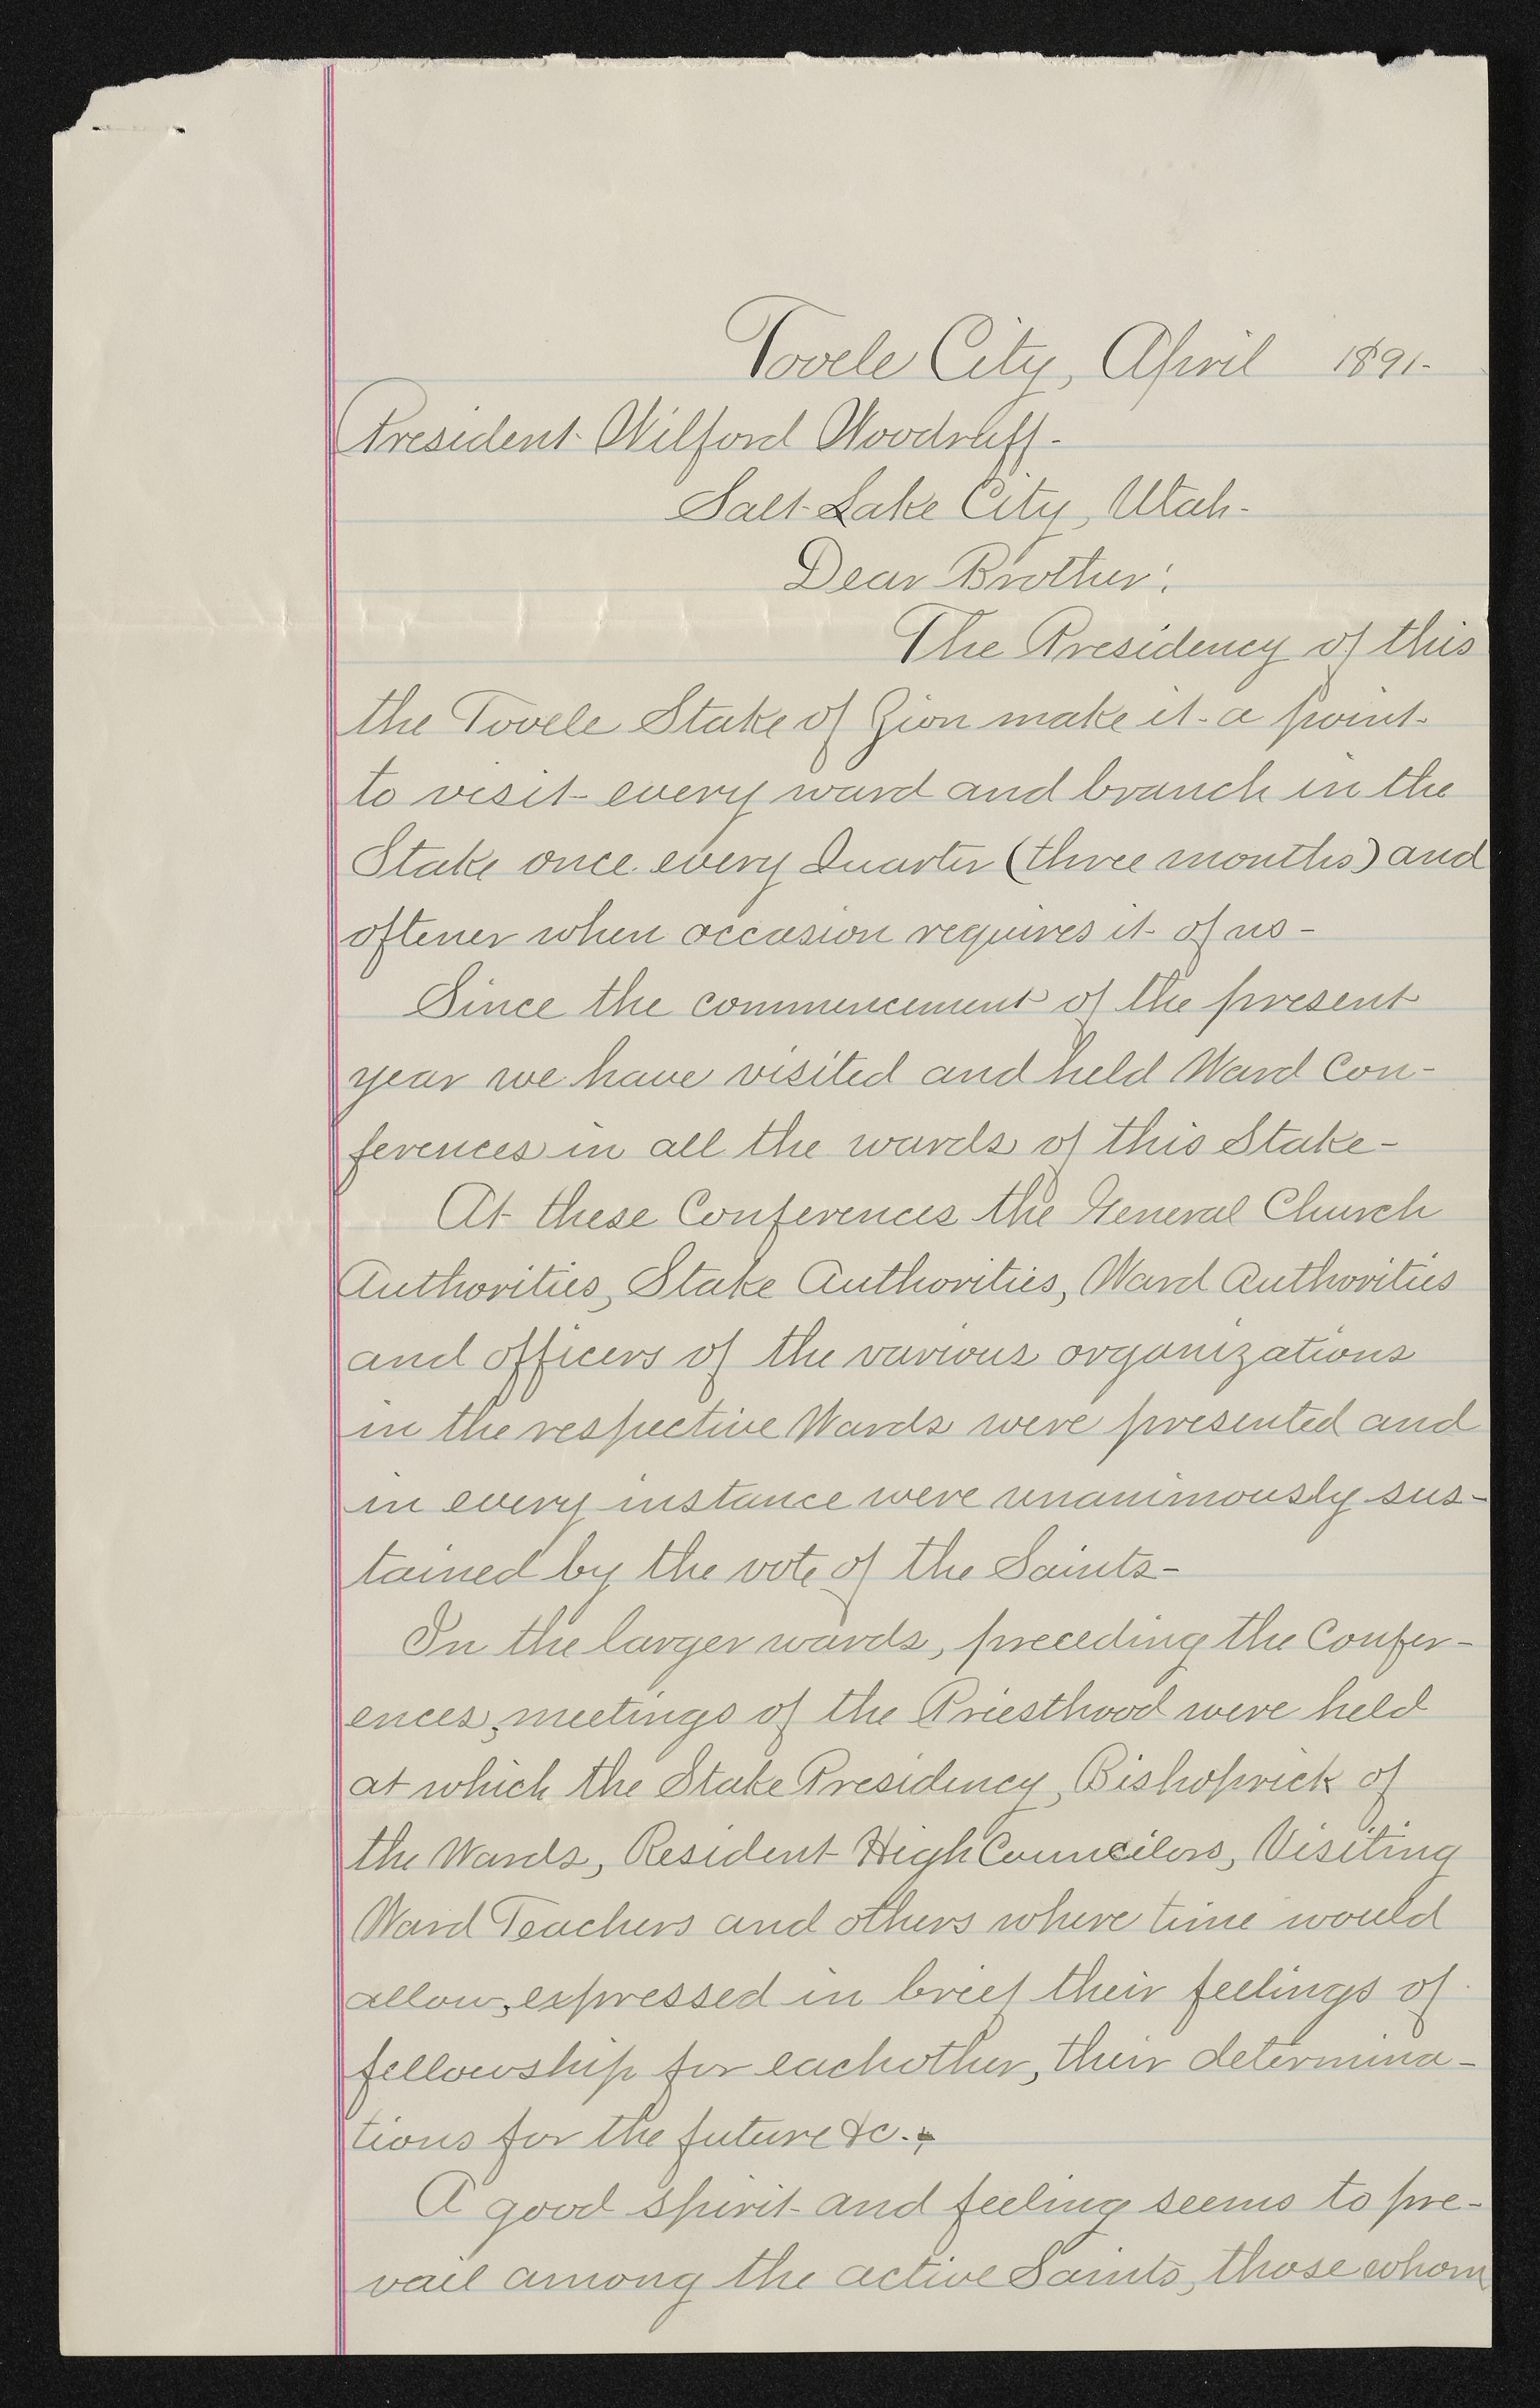 Tooele City, April 1891-
President Wilford Woodruff-
Salt Lake City, Utah-
Dear Brother:
The Presidency of this
the Tooele Stake of Zion make it a point
to visit every ward and branch in the
Stake once every Quarter (three months) and
oftener when occasion requires it of us-
Since the commencement of the present
year we have visited and held Ward Con-
ferences in all the wards of this Stake-
At these Conferences the General Church
Authorities, Stake Authorities, Ward Authorities
and officers of the various organizations
in the respective Wards were presented and
in every instance were unanimously sus-
tained by the vote of the Saints-
In the larger wards, preceding the Confer-
ences, meetings of the Priesthood were held
at which the Stake Presidency, Bishoprick of
the Wards, Resident High Councilors, Visiting
Ward Teachers and others where time would
allow, expressed in brief their feelings of
fellowship for eachother, their determina-
tions for the future &c.-
A good spirit and feeling seems to pre-
vail among the active Saints, those whom